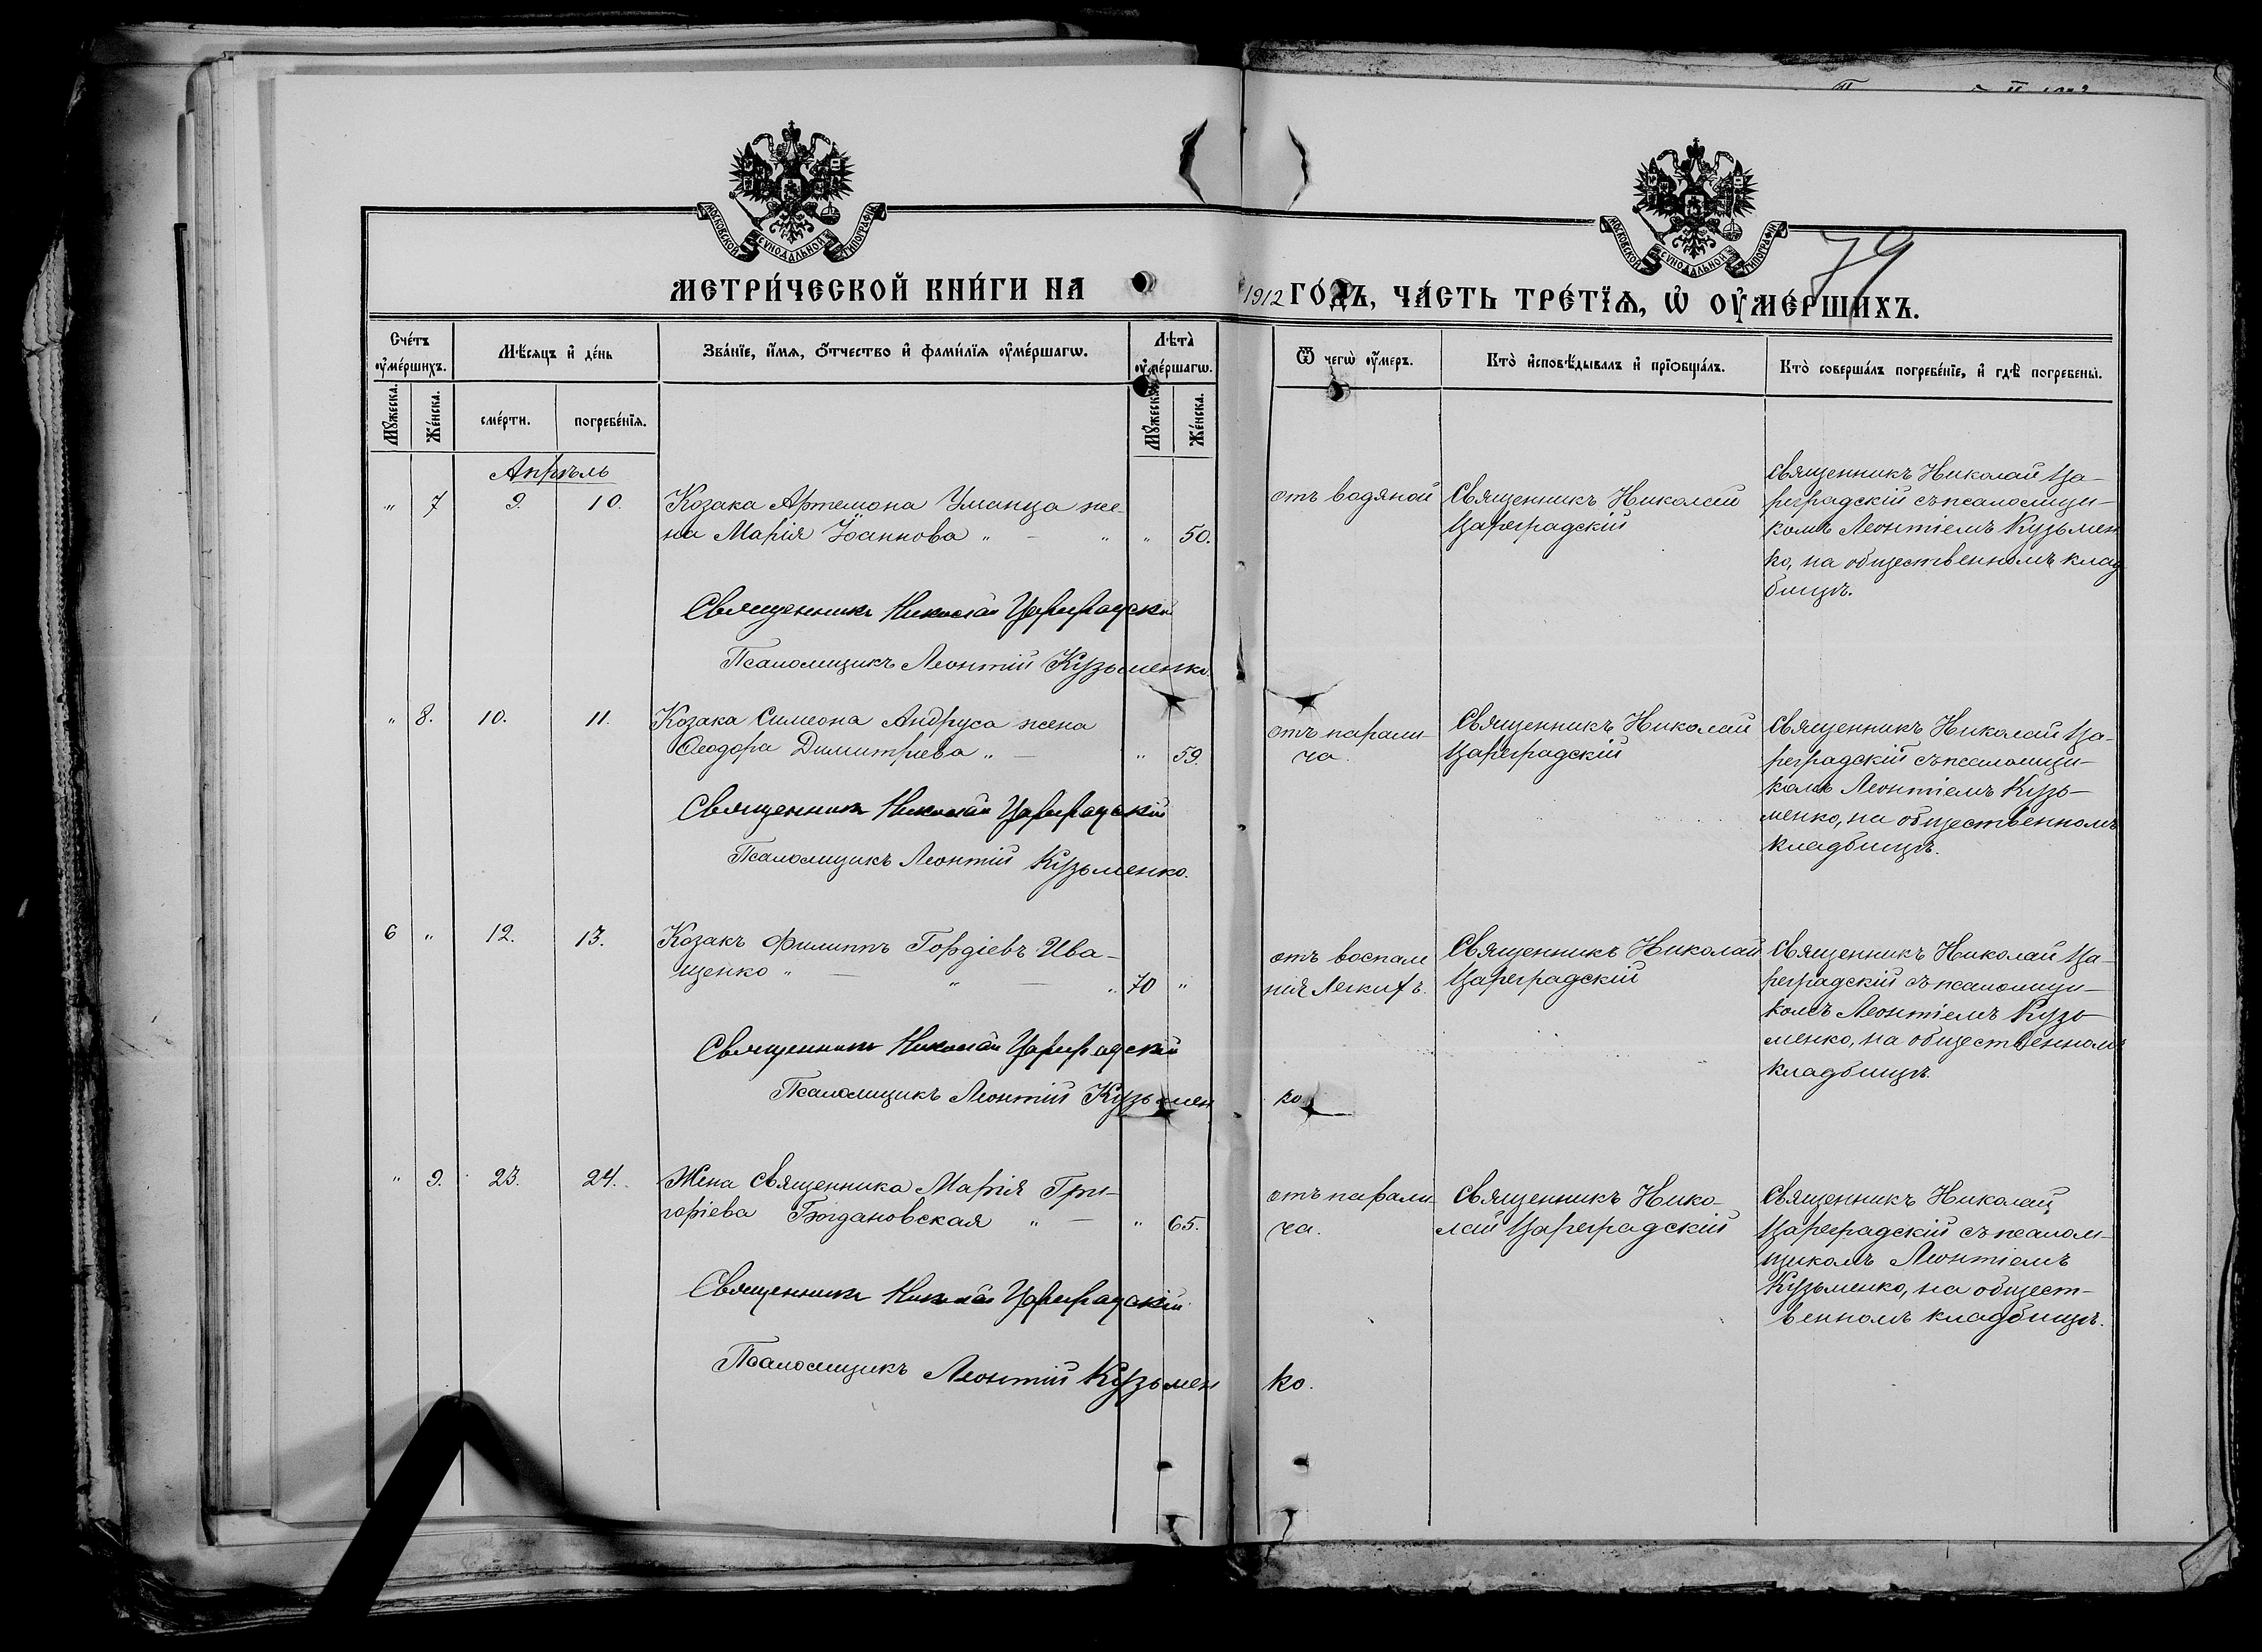 МОСКОВСКОЙ СѴНОДАЛЬНОЙ ТИПОГРАФІИ
МОСКОВСКОЙ СѴНОДАЛЬНОЙ ТИПОГРАФІИ
79
МЕТРИ́ЧЕСКОЙ КНИ́ГИ НА 1912 ГО́ДЪ, ЧА́СТЬ ТРЕ́ТЇѦ, Ѡ҆ ОУ҆МЕ́РШИХЪ.
Сче́тъ оу҆ме́ршихъ.
Мѣ́сяцъ и҆ де́нь
Зва́нїе, и҆́мѧ, ѻ҆́тчество и҆ фами́лїѧ оу҆ме́ршагѡ.
Лѣ́та̀ оу҆ме́ршагѡ.
Ѿ чегѡ̀ оу҆́меръ.
Кто̀ и҆сповѣ́дывалъ и҆ прїѡбща́лъ.
Кто̀ соверша́лъ погребе́нїе, и҆ гдѣ̀ погребены̀.
Мꙋ́жеска.
Же́нска.
сме́рти.
погребе́нїѧ.
Мꙋ́жеска.
Же́нска.
Апрѣль
" 7 9. 10. Козака Артемона Уманца же-
на Марія Іоаннова " - " " 50.
отъ водяной
Священникъ Николай
Цареградскій
Священникъ Николай Ца-
реградскій съ псаломщи-
комъ Леонтіемъ Кузьмен
ко, на общественномъ клад
бищѣ.
Священникъ Николай Цареградскій
Псаломщикъ Леонтій Кузьменко.
" 8. 10. 11. Козака Симеона Андруса жена
Ѳеодора Димитріева " - " 59.
отъ парали-
ча.
Священникъ Николай
Цареградскій
Священникъ Николай Ца-
реградскій съ псаломщи-
комъ Леонтіемъ Кузь-
менко, на общественномъ
кладбищѣ.
Священникъ Николай Цареградскій
Псаломщикъ Леонтій Кузьменко.
6 " 12. 13. Козакъ Филиппъ Гордіевъ Ива-
щенко " - " - " 70 "
отъ воспале
нія легкихъ.
Священникъ Николай
Цареградскій
Священникъ Николай Ца-
реградскій съ псаломщи-
комъ Леонтіемъ Кузь
менко, на общественномъ
кладбищѣ.
Священникъ Николай Цареградскій
Псаломщикъ Леонтій Кузьмен ко.
" 9. 23. 24. Жена священника Марія Гри-
горіева Богдановская " - " 65.
отъ парали-
ча.
Священникъ Нико-
лай Цареградскій
Священникъ Николай
Цареградскій съ псалом-
щикомъ Леонтіемъ
Кузьменко, на общест-
венномъ кладбищѣ.
Священникъ Николай Цареградскій
Псаломщикъ Леонтій Кузьмен ко.